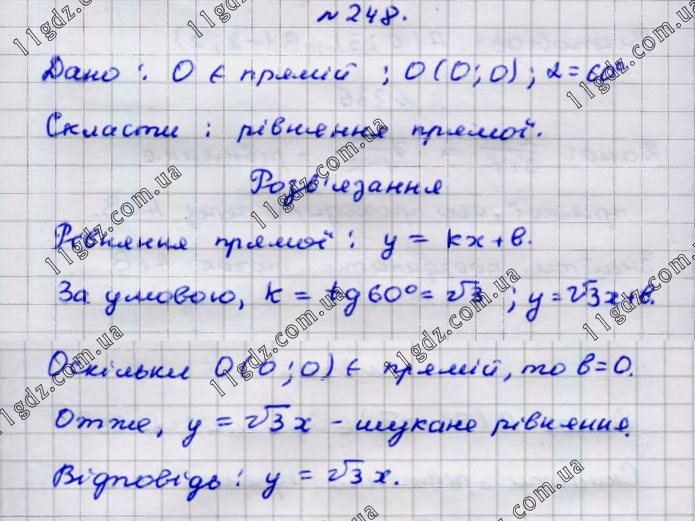 № 248.
Дано: O ∈ прямій; O(0;0); α=60°
Скласти: рівняння прямої.
Розв'язання
Рівняння прямої: y = kx+b.
За умовою, k = tg60°= √3; y=√3x+b.
Оскільки O(0;0) ∈ прямій, то b=0.
Отже, y = √3x - шукане рівняння.
Відповідь: y = √3x.
11gdz.com.ua
11gdz.com.ua
11gdz.com.ua
11gdz.com.ua
11gdz.com.ua
11gdz.com.ua
11gdz.com.ua
11gdz.com.ua
11gdz.com.ua
11gdz.com.ua
11gdz.com.ua